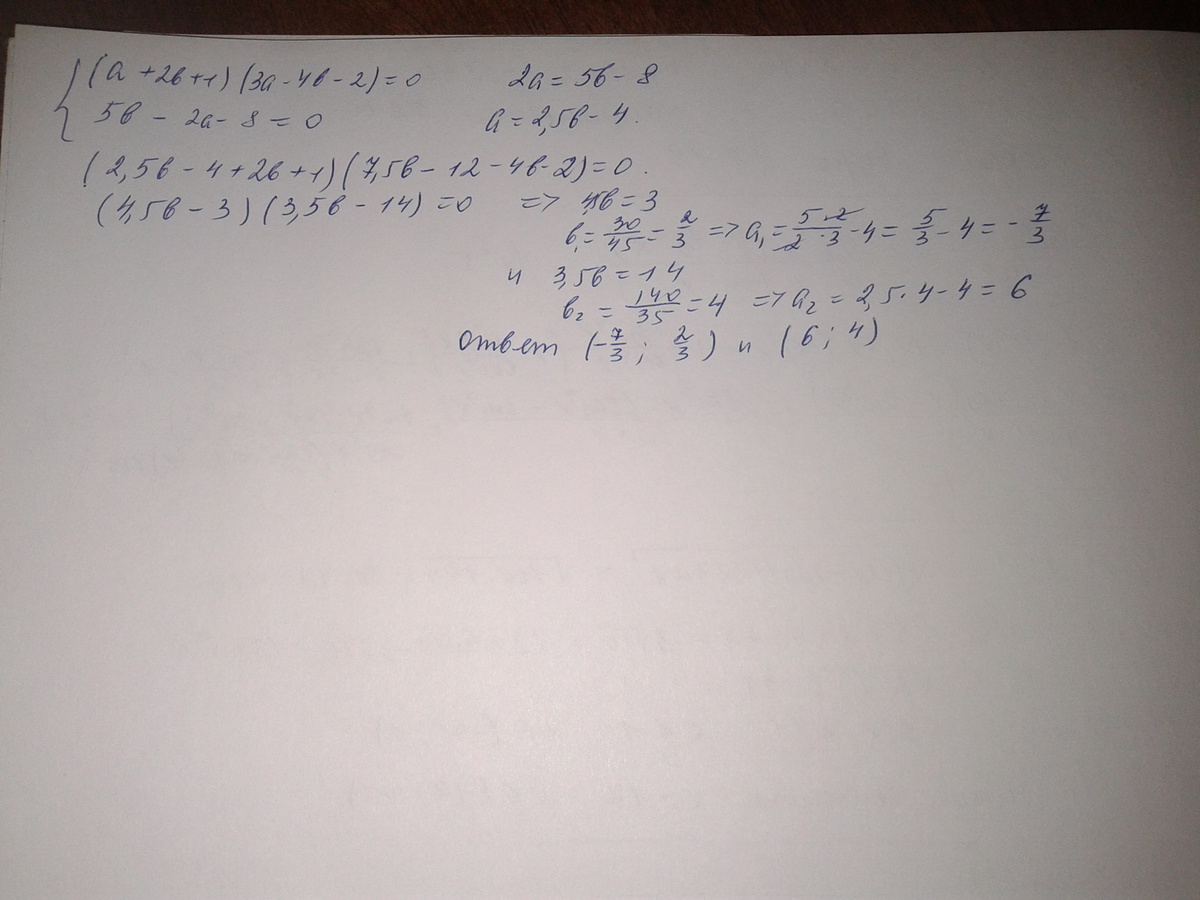 (a + 2b + 1)(3a - 4b - 2) = 0 2a = 5b - 8
5b - 2a - 8 = 0 a = 2,5b - 4.
(2,5b - 4 + 2b + 1)(7,5b - 12 - 4b - 2) = 0.
(4,5b - 3)(3,5b - 14) = 0 => 4,5b = 3
b₁ = 30/45 = 2/3 => a₁ = 5·2/2·3 - 4 = 5/3 - 4 = -7/3
и 3,5b = 14
b₂ = 140/35 = 4 => a₂ = 2,5·4 - 4 = 6
ответ (-7/3; 2/3) и (6; 4)